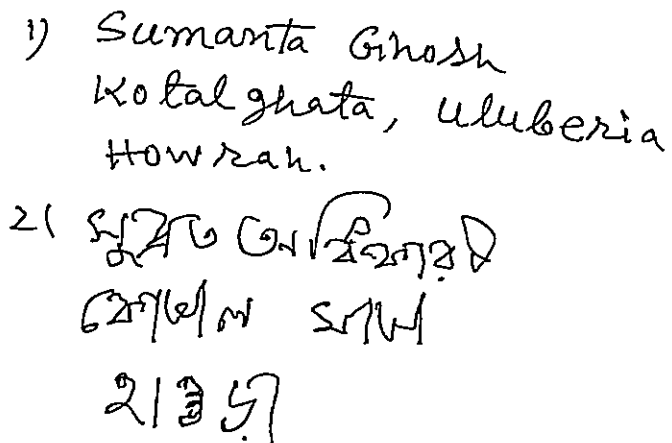 1) Sumanta Ghosh
Kotalghata, Uluberia
Howrah.
2( সুব্রত অধিকারী
কোটাল ঘাটা
হাওড়া